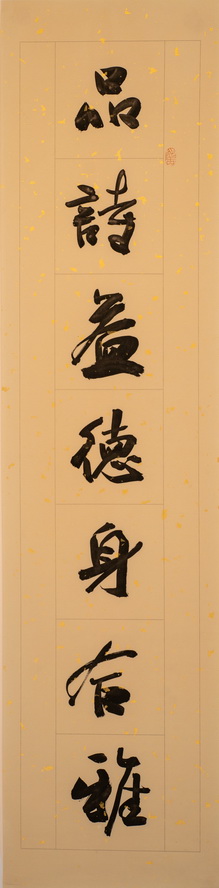 品詩益德身合雅